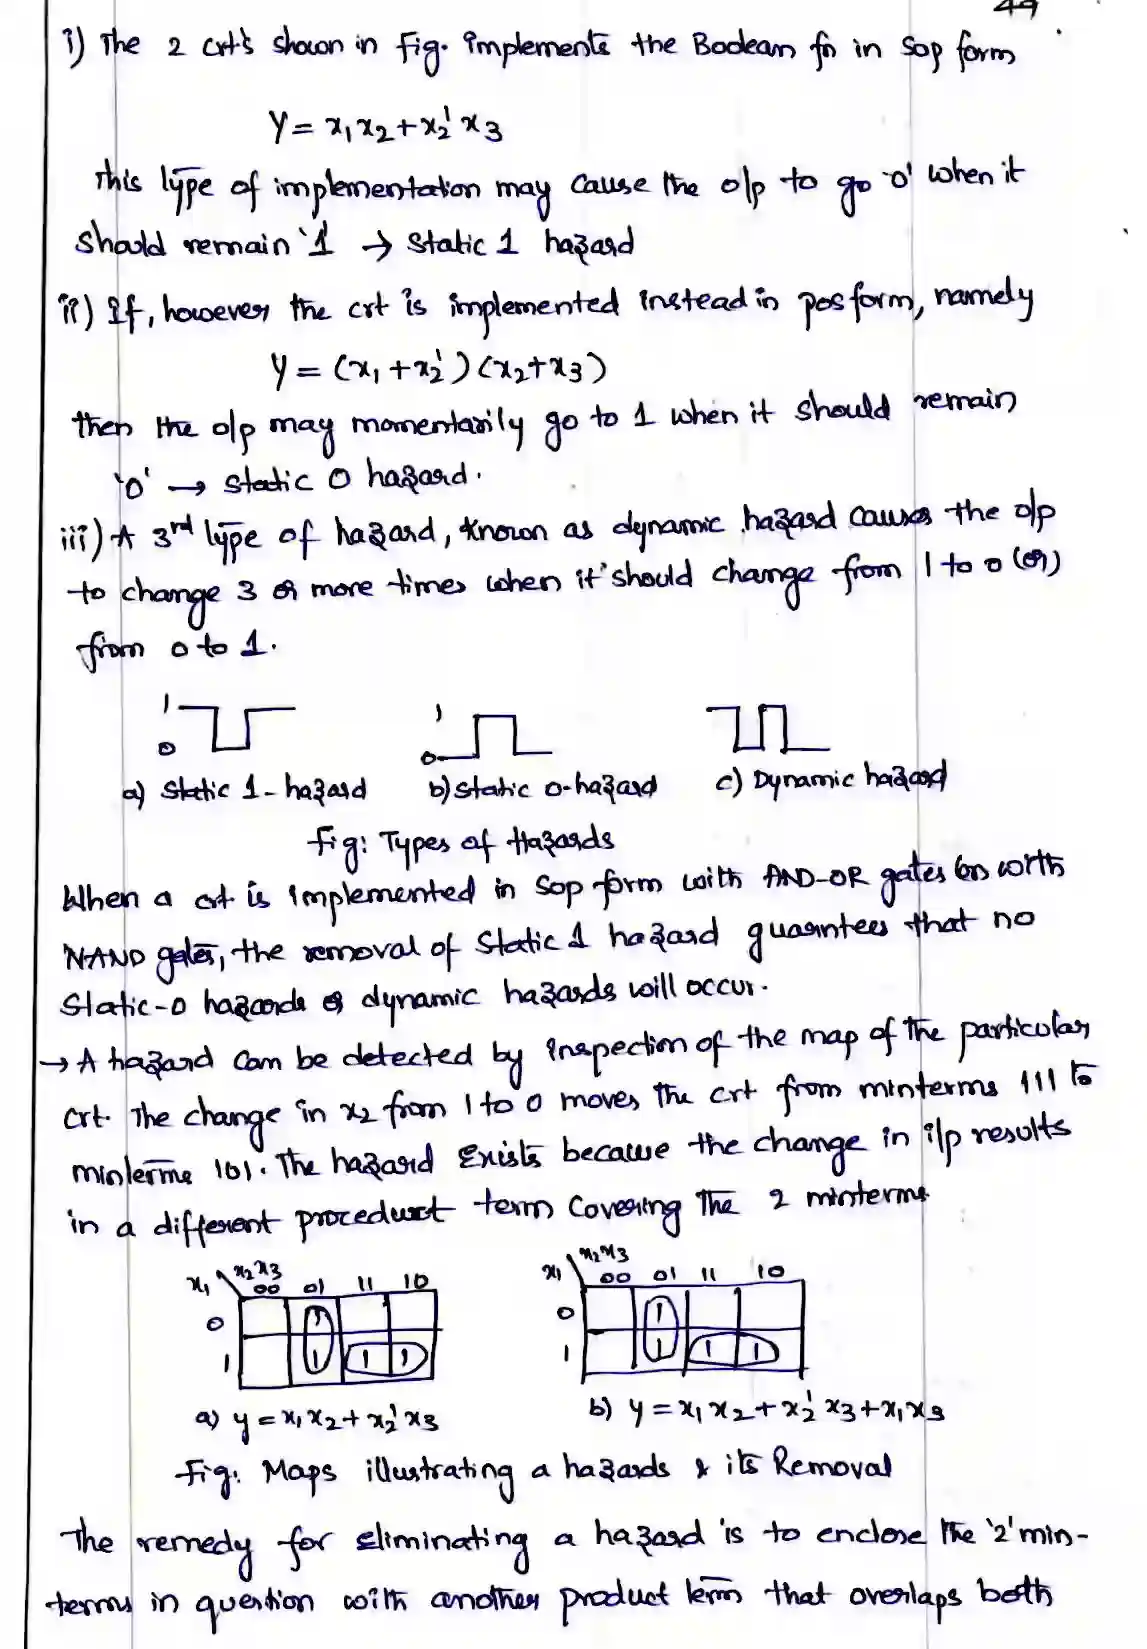 49
i) The 2 crt's shown in Fig. implements the Boolean fn in SOP form
Y = x₁x₂+x₂'x₃
This type of implementation may cause the o/p to go '0' when it
should remain '1 → static 1 hazard
ii) If, however the crt is implemented instead in pos form, namely
Y = (x₁+x₂')(x₂+x₃)
then the o/p may momentarily go to 1 when it should remain
'0' → static 0 hazard.
iii) A 3rd type of hazard, known as dynamic hazard causes the o/p
to change 3 or more times when it should change from 1 to 0 (or)
from 0 to 1.
1 1
0 0
a) Static 1-hazard b) static 0-hazard c) Dynamic hazard
Fig: Types of Hazards
When a crt is implemented in SOP form with AND-OR gates (or) with
NAND gates, the removal of static 1 hazard guarntees that no
static-0 hazards or dynamic hazards will occur.
→ A hazard can be detected by inspection of the map of the particular
crt. The change in x₂ from 1 to 0 moves the crt from minterms 111 to
minterms 101. The hazard Exists because the change in i/p results
in a different proceduct term covering the 2 minterms.
x₁ x₂x₃ 00 01 11 10 x₁ x₂x₃ 00 01 11 10
0 1 0 1
1 1 1 1 1 1 1 1
a) y = x₁x₂+x₂'x₃ b) y = x₁x₂+x₂'x₃+x₁x₃
Fig: Maps illustrating a hazards & its Removal
The remedy for eliminating a hazard is to enclose the '2' min-
terms in question with another product term that overlaps both